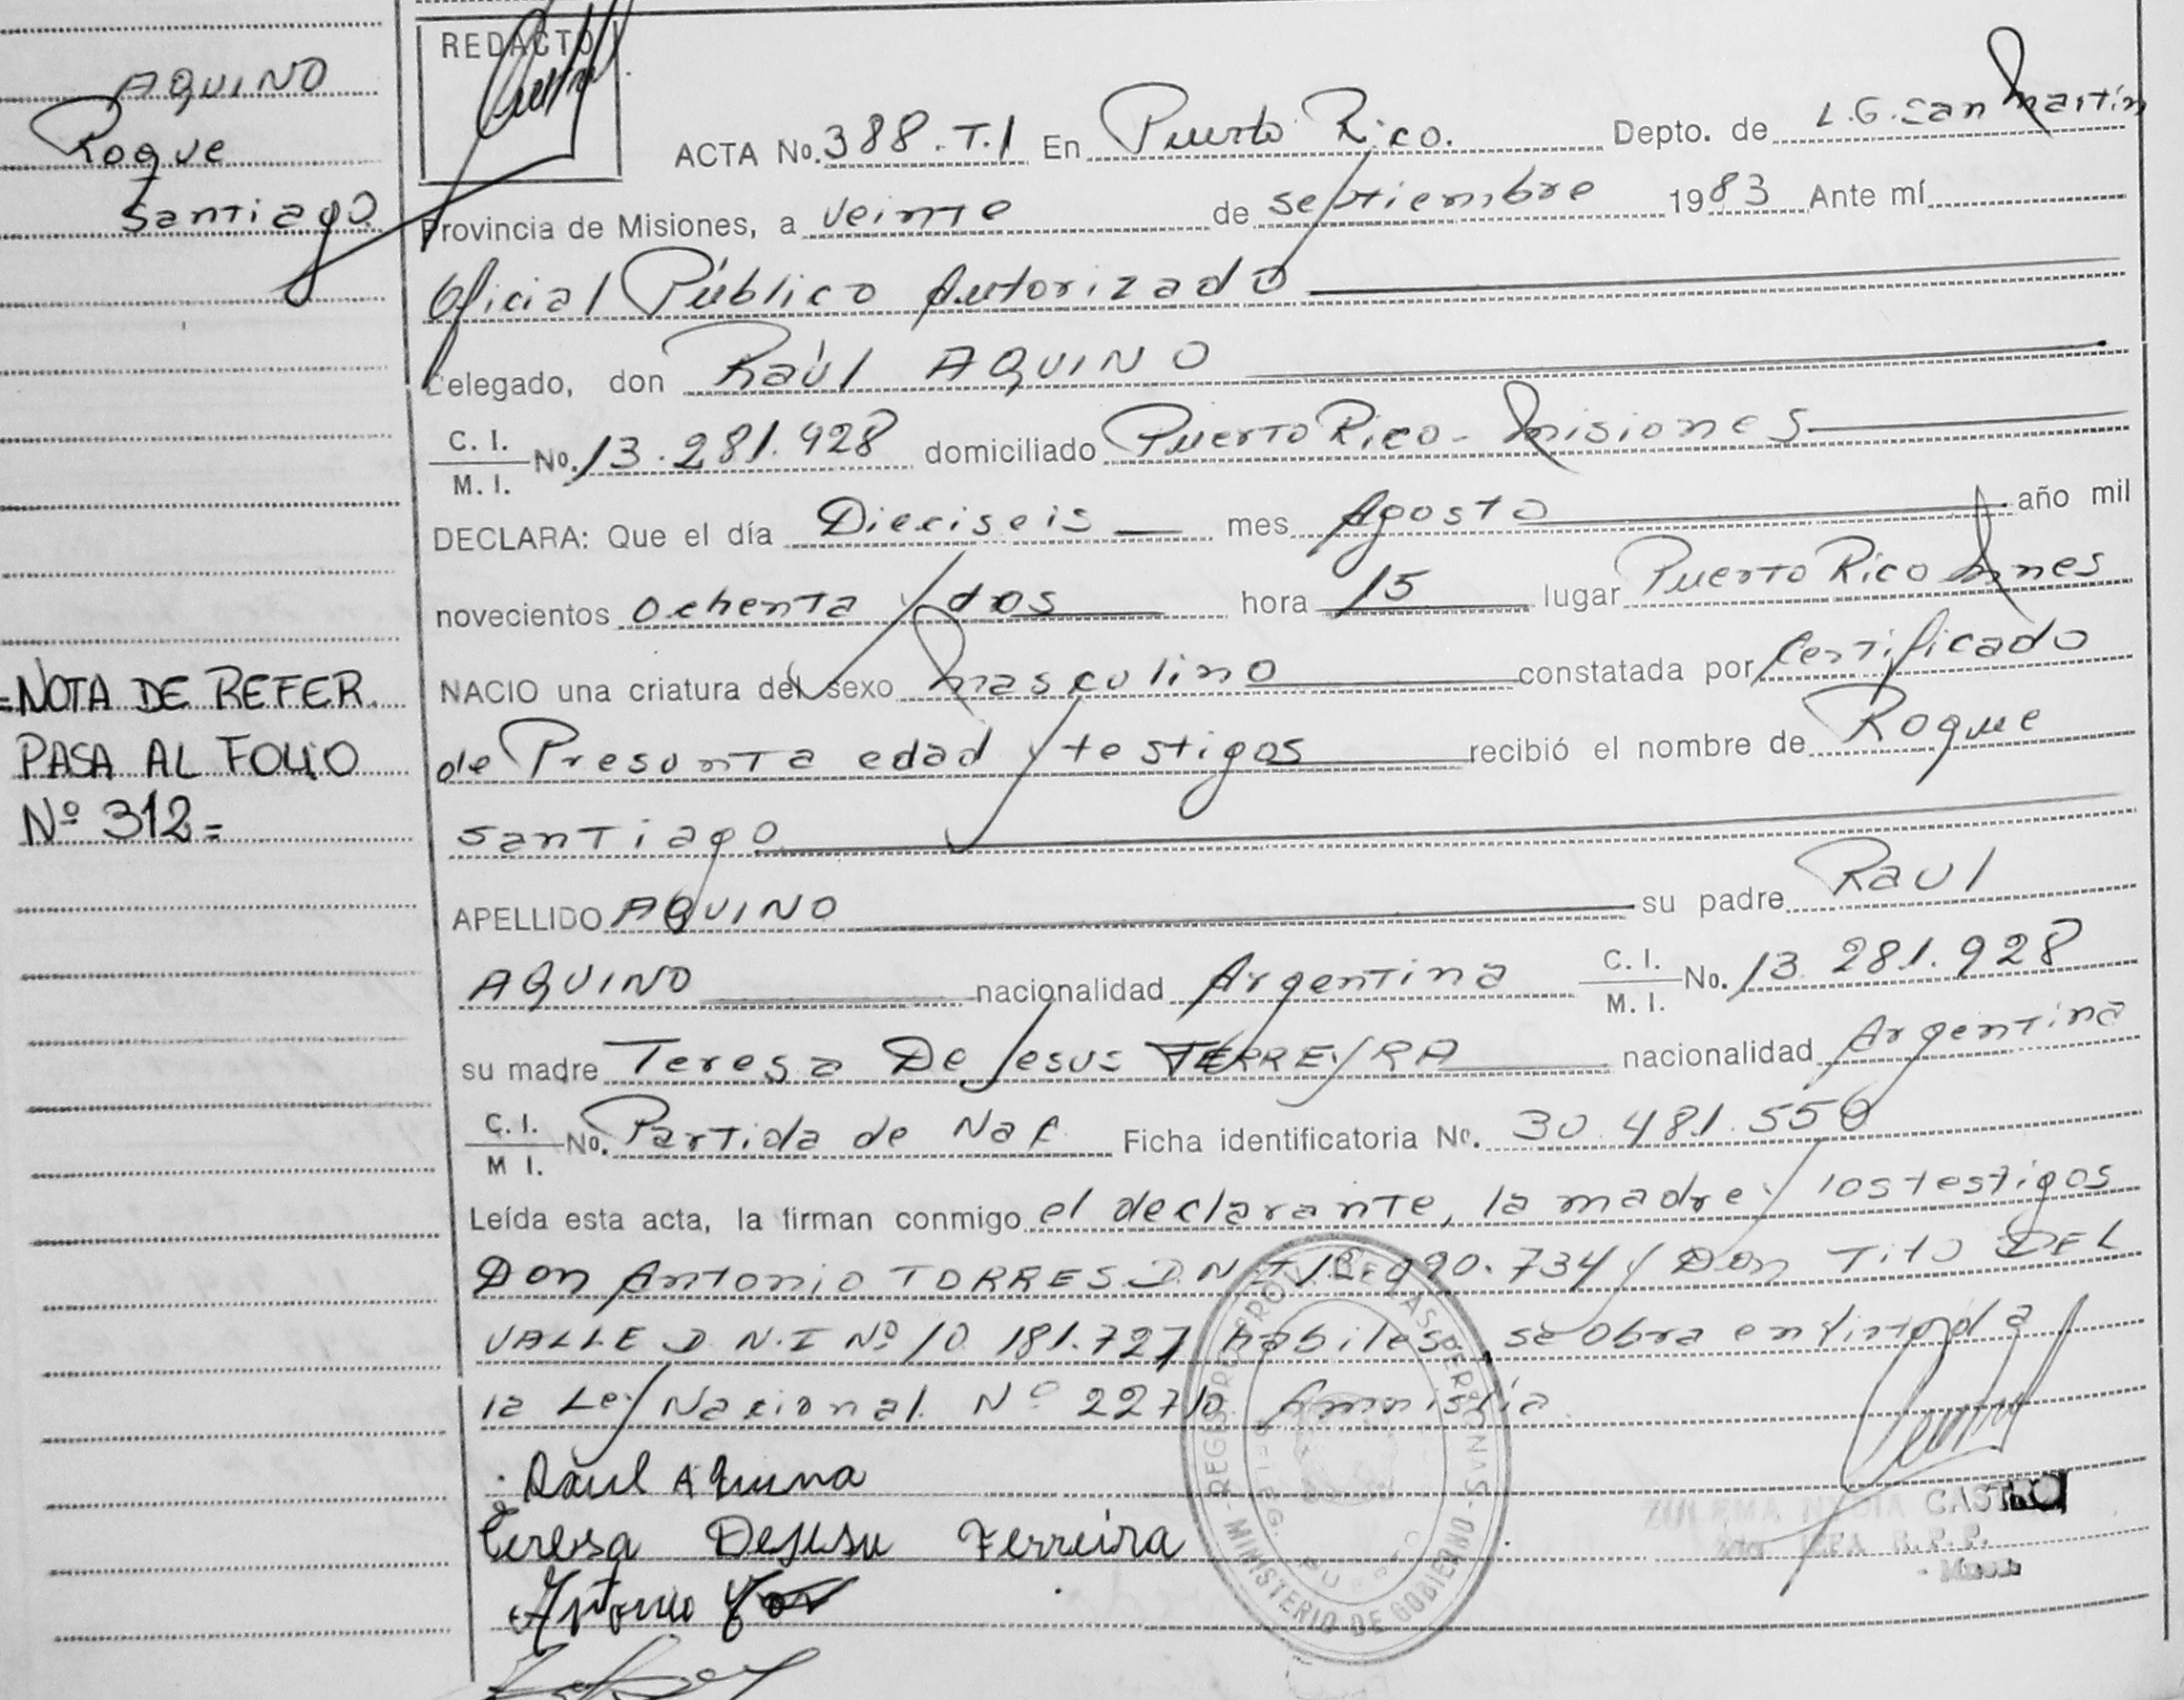 AQUINO
Roque
Santiago
=NOTA DE REFER.
PASA AL FOLIO
Nº 312=
REDACTO
ACTA No. 388.T.1 En Puerto Rico. Depto. de L.G. San Martín
Provincia de Misiones, a veinte de septiembre 1983 Ante mí
Oficial Público Autorizado
Delegado, don Raúl AQUINO
C. I.
M. I. No. 13.281.928 domiciliado Puerto Rico - Misiones
DECLARA: Que el día Dieciseis mes Agosto año mil
novecientos ochenta y dos hora 15 lugar Puerto Rico Mnes
NACIO una criatura del sexo masculino constatada por Certificado
de Presunta edad y testigos recibió el nombre de Roque
Santiago
APELLIDO AQUINO su padre Raul
AQUINO nacionalidad Argentina C. I.
M. I. No. 13.281.928
su madre Teresa De Jesus FERREYRA nacionalidad Argentina
C. I.
M I. No. Partida de Nac. Ficha identificatoria No. 30.481.550
Leída esta acta, la firman conmigo el declarante, la madre y los testigos
Don Antonio TORRES D.N.I 12.090.734 y Don Tito DEL
VALLE D.N.I Nº 10.181.727 habiles, se obra en virtud a
la Ley Nacional Nº 22710 Amnistía.
Raul Aquino
Teresa Dejesu Ferreira
Antonio
REGISTRO PROV. DE LAS PERSONAS
MINISTERIO DE GOBIERNO
ZULEMA NYDIA CASTRO
R. P. P.